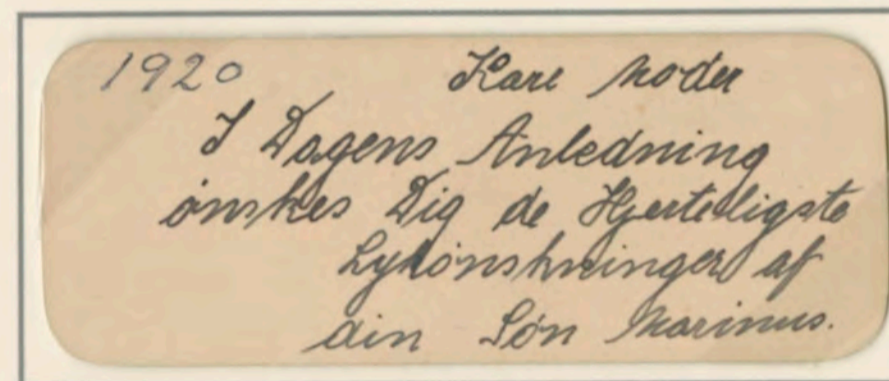 1920 Kære Moder
I Dagens Anledning
ønskes Dig de Hjerteligste
Lykønskninger af
din Søn Marinus.